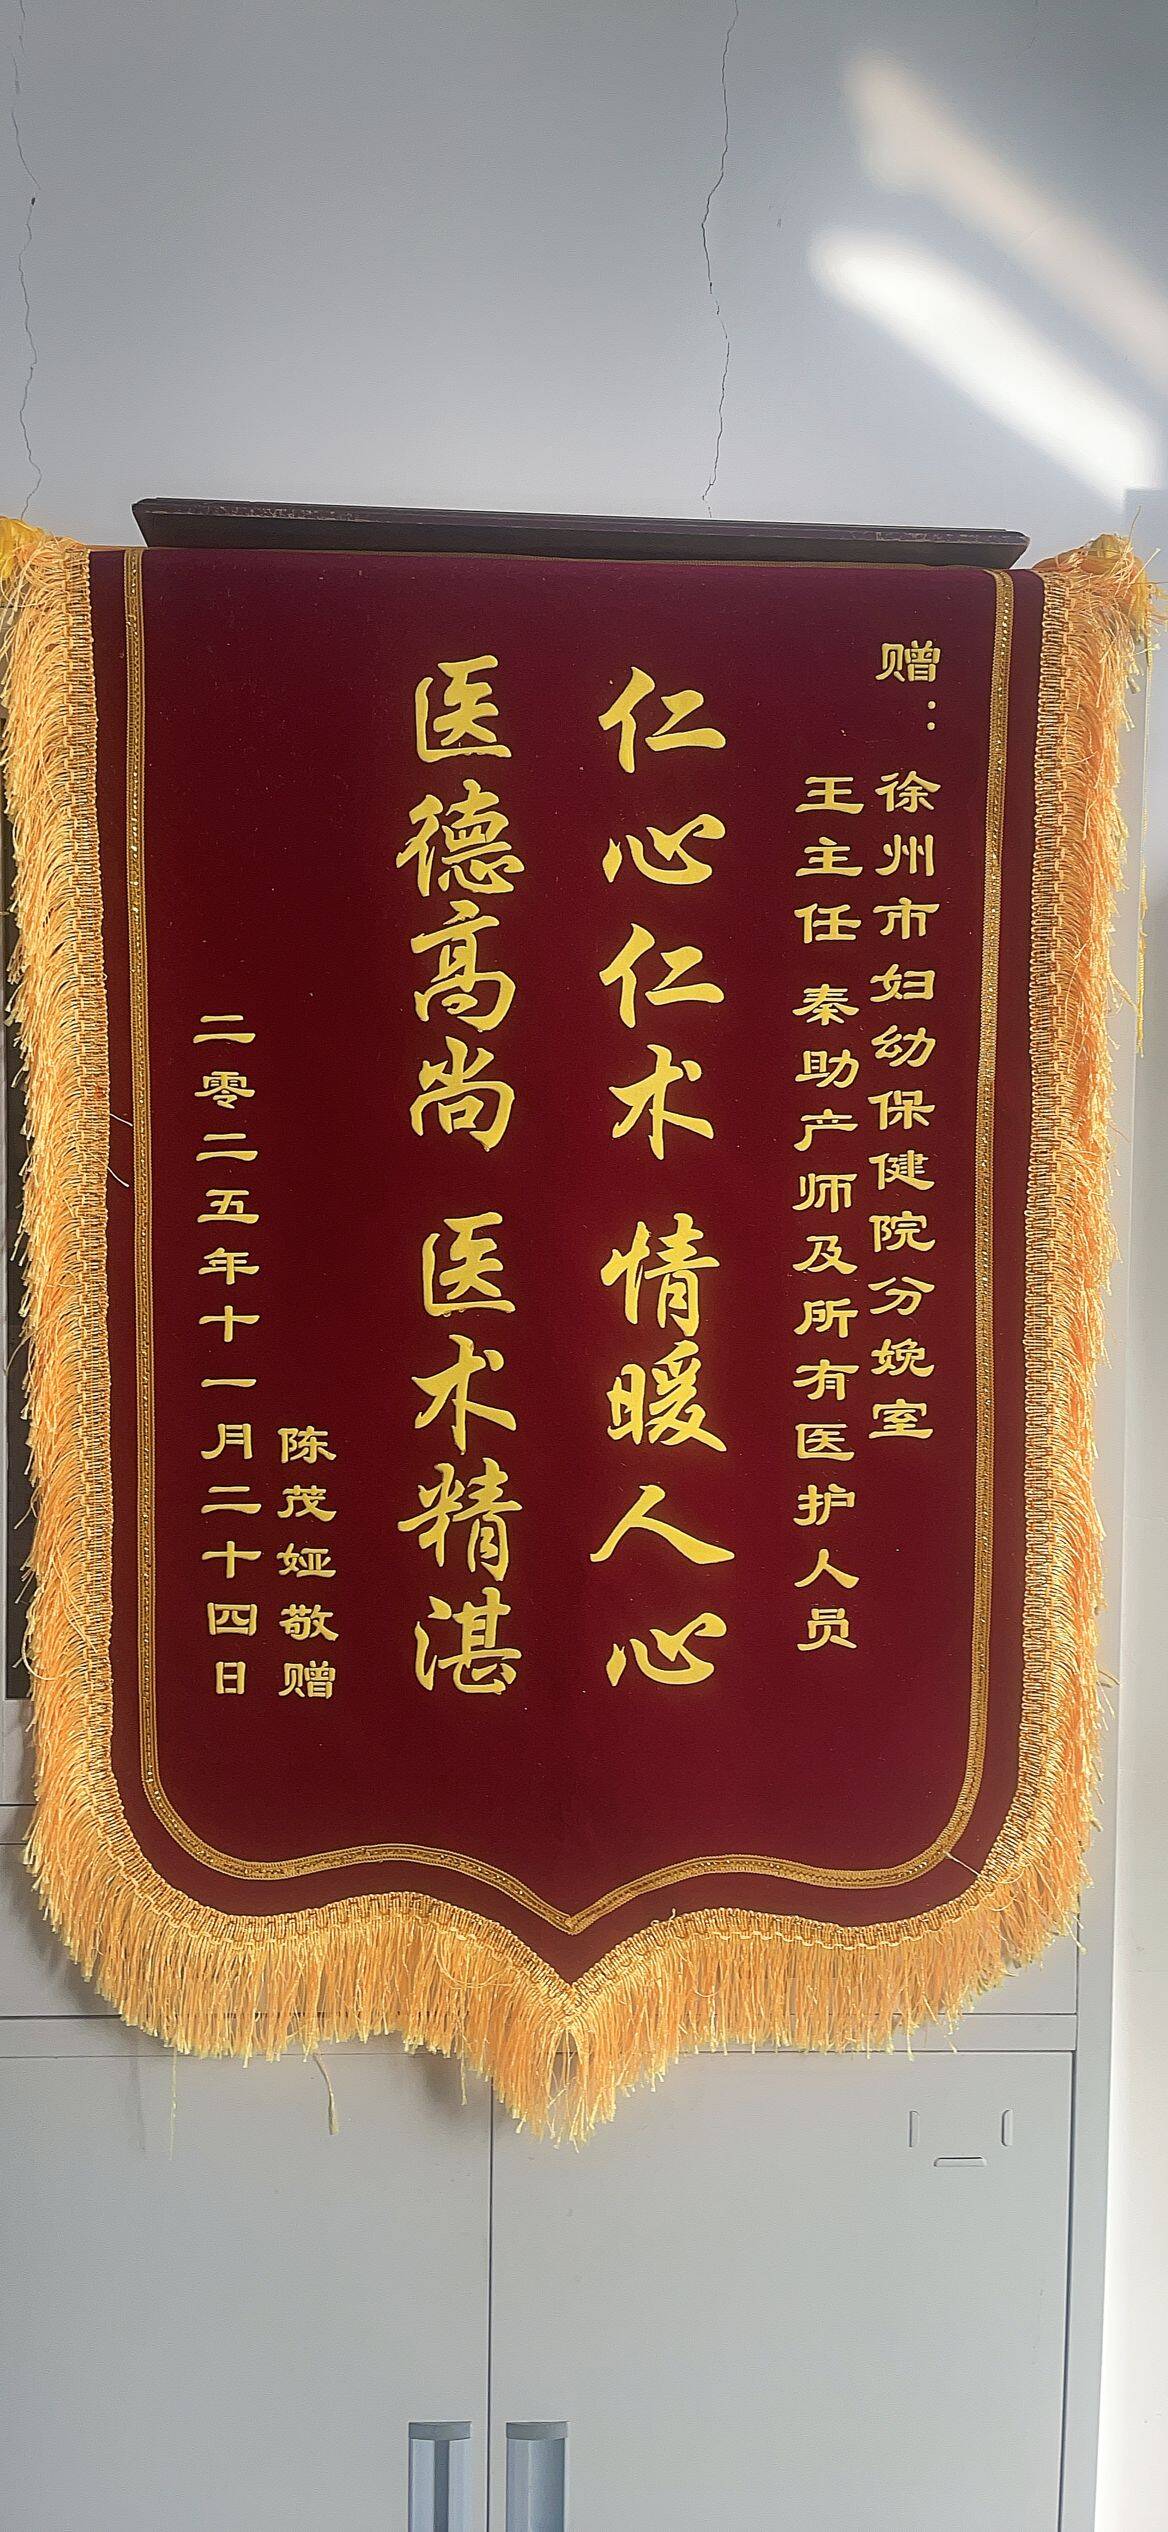 赠：徐州市妇幼保健院分娩室
王主任 秦助产师及所有医护人员
仁心仁术 情暖人心
医德高尚 医术精湛
陈茂娅敬赠
二零二五年十一月二十四日